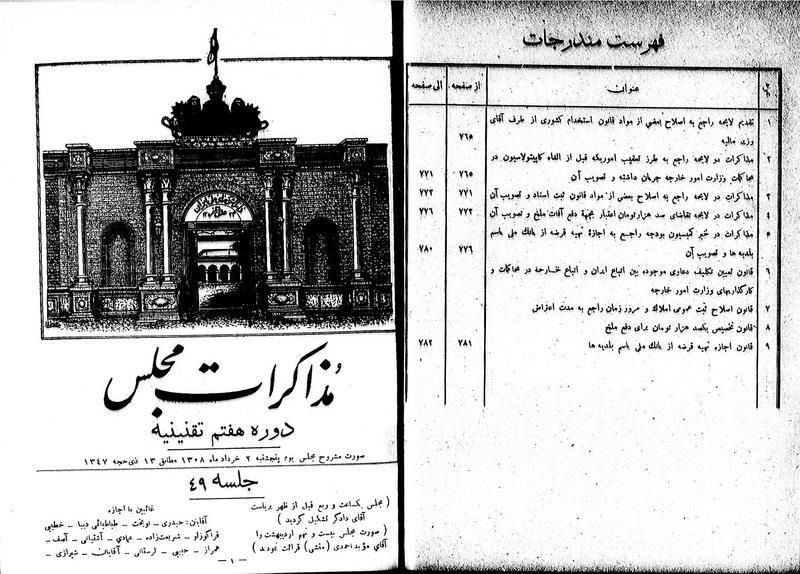 مذاکرات مجلس
دوره هفتم تقنینیه
صورت مشروح مجلس یوم پنجشنبه ۲ خرداد ماه ۱۳۰۸ مطابق ۱۳ ذی حجه ۱۳۴۷
جلسه ۴۹
( مجلس یکساعت و ربع قبل از ظهر بریاست
آقای دادگر تشکیل گردید )
( صورت مجلس بیست و نهم اردیبهشت را
آقای مؤید احمدی (منشی) قرائت نمودند )
غائبین با اجازه
آقایان : حیدری ـ نوبخت ـ طباطبائی دیبا ـ خطیبی
قراگوزلو ـ شریعت زاده ـ عمادی ـ آشتیانی ـ آصف ـ
ـ حبیبی ـ لرستانی ـ آقایان ـ شیرازی ـ
ـ ۱ ـ
فهرست مندرجات
عنوان از صفحه الی صفحه
۱ تقدیم لایحه راجع به اصلاح بعضی از مواد قانون استخدام کشوری از طرف آقای
وزیر مالیه ۷۶۵
۲ مذاکرات در لایحه راجع به طرز تعقیب اموریکه قبل از الغاء کاپیتولاسیون در
محاکمات وزارت امور خارجه جریان داشته و تصویب آن ۷۶۵ ۷۷۱
۳ مذاکرات در لایحه راجع به اصلاح بعضی از مواد قانون ثبت اسناد و تصویب آن ۷۷۱ ۷۷۲
۴ مذاکرات در لایحه تقاضای سد هزار تومان اعتبار بجهة دفع آفات ملخ و تصویب آن ۷۷۲ ۷۷۶
۵ مذاکرات در خبر کمیسیون بودجه راجع به اجازة تهیه قرضه از بانک ملی باسم
بلدیه ها و تصویب آن ۷۷۶ ۷۸۰
۶ قانون تعیین تکلیف دعاوی موجوده بین اتباع ایران و اتباع خارجه در محاکمات و
کارگذاریهای وزارت امور خارجه
۷ قانون اصلاح ثبت عمومی املاک و مرور زمان راجع به مدت اعتراض
۸ قانون تخصیص یکصد هزار تومان برای دفع ملخ
۹ قانون اجازه تهیه قرضه از بانک ملی باسم بلدیه ها ۷۸۱ ۷۸۲